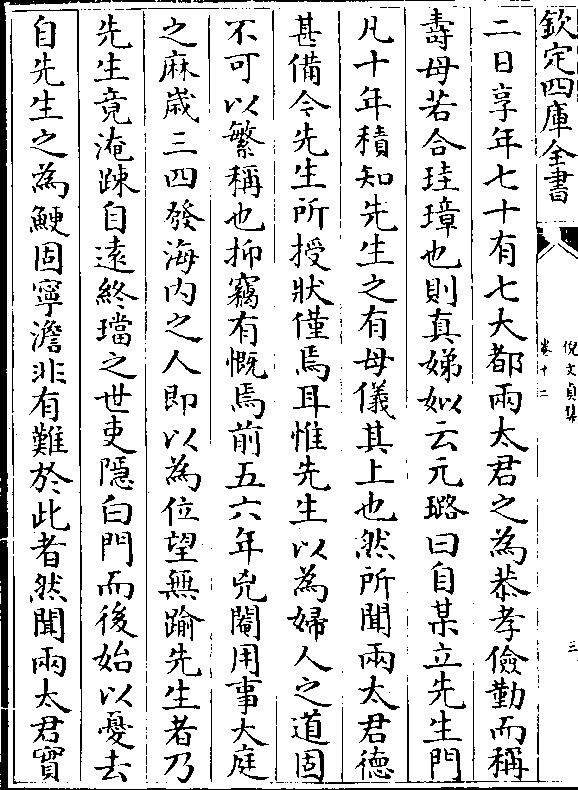 欽定四庫全書
倪文貞集
卷十二
三
二日享年七十有七大都兩太君之為恭孝儉勤而稱
壽母若合珪璋也則真娣姒云元璐曰自某立先生門
凡十年積知先生之有母儀其上也然所聞兩太君德
甚備今先生所授狀僅焉耳惟先生以為婦人之道固
不可以繁稱也抑竊有慨焉前五六年兇閹用事大庭
之麻歲三四發海内之人即以為位望無踰先生者乃
先生竟淹踈自逺終璫之世吏隠白門而後始以憂去
自先生之為鯁固寧澹非有難於此者然聞兩太君實